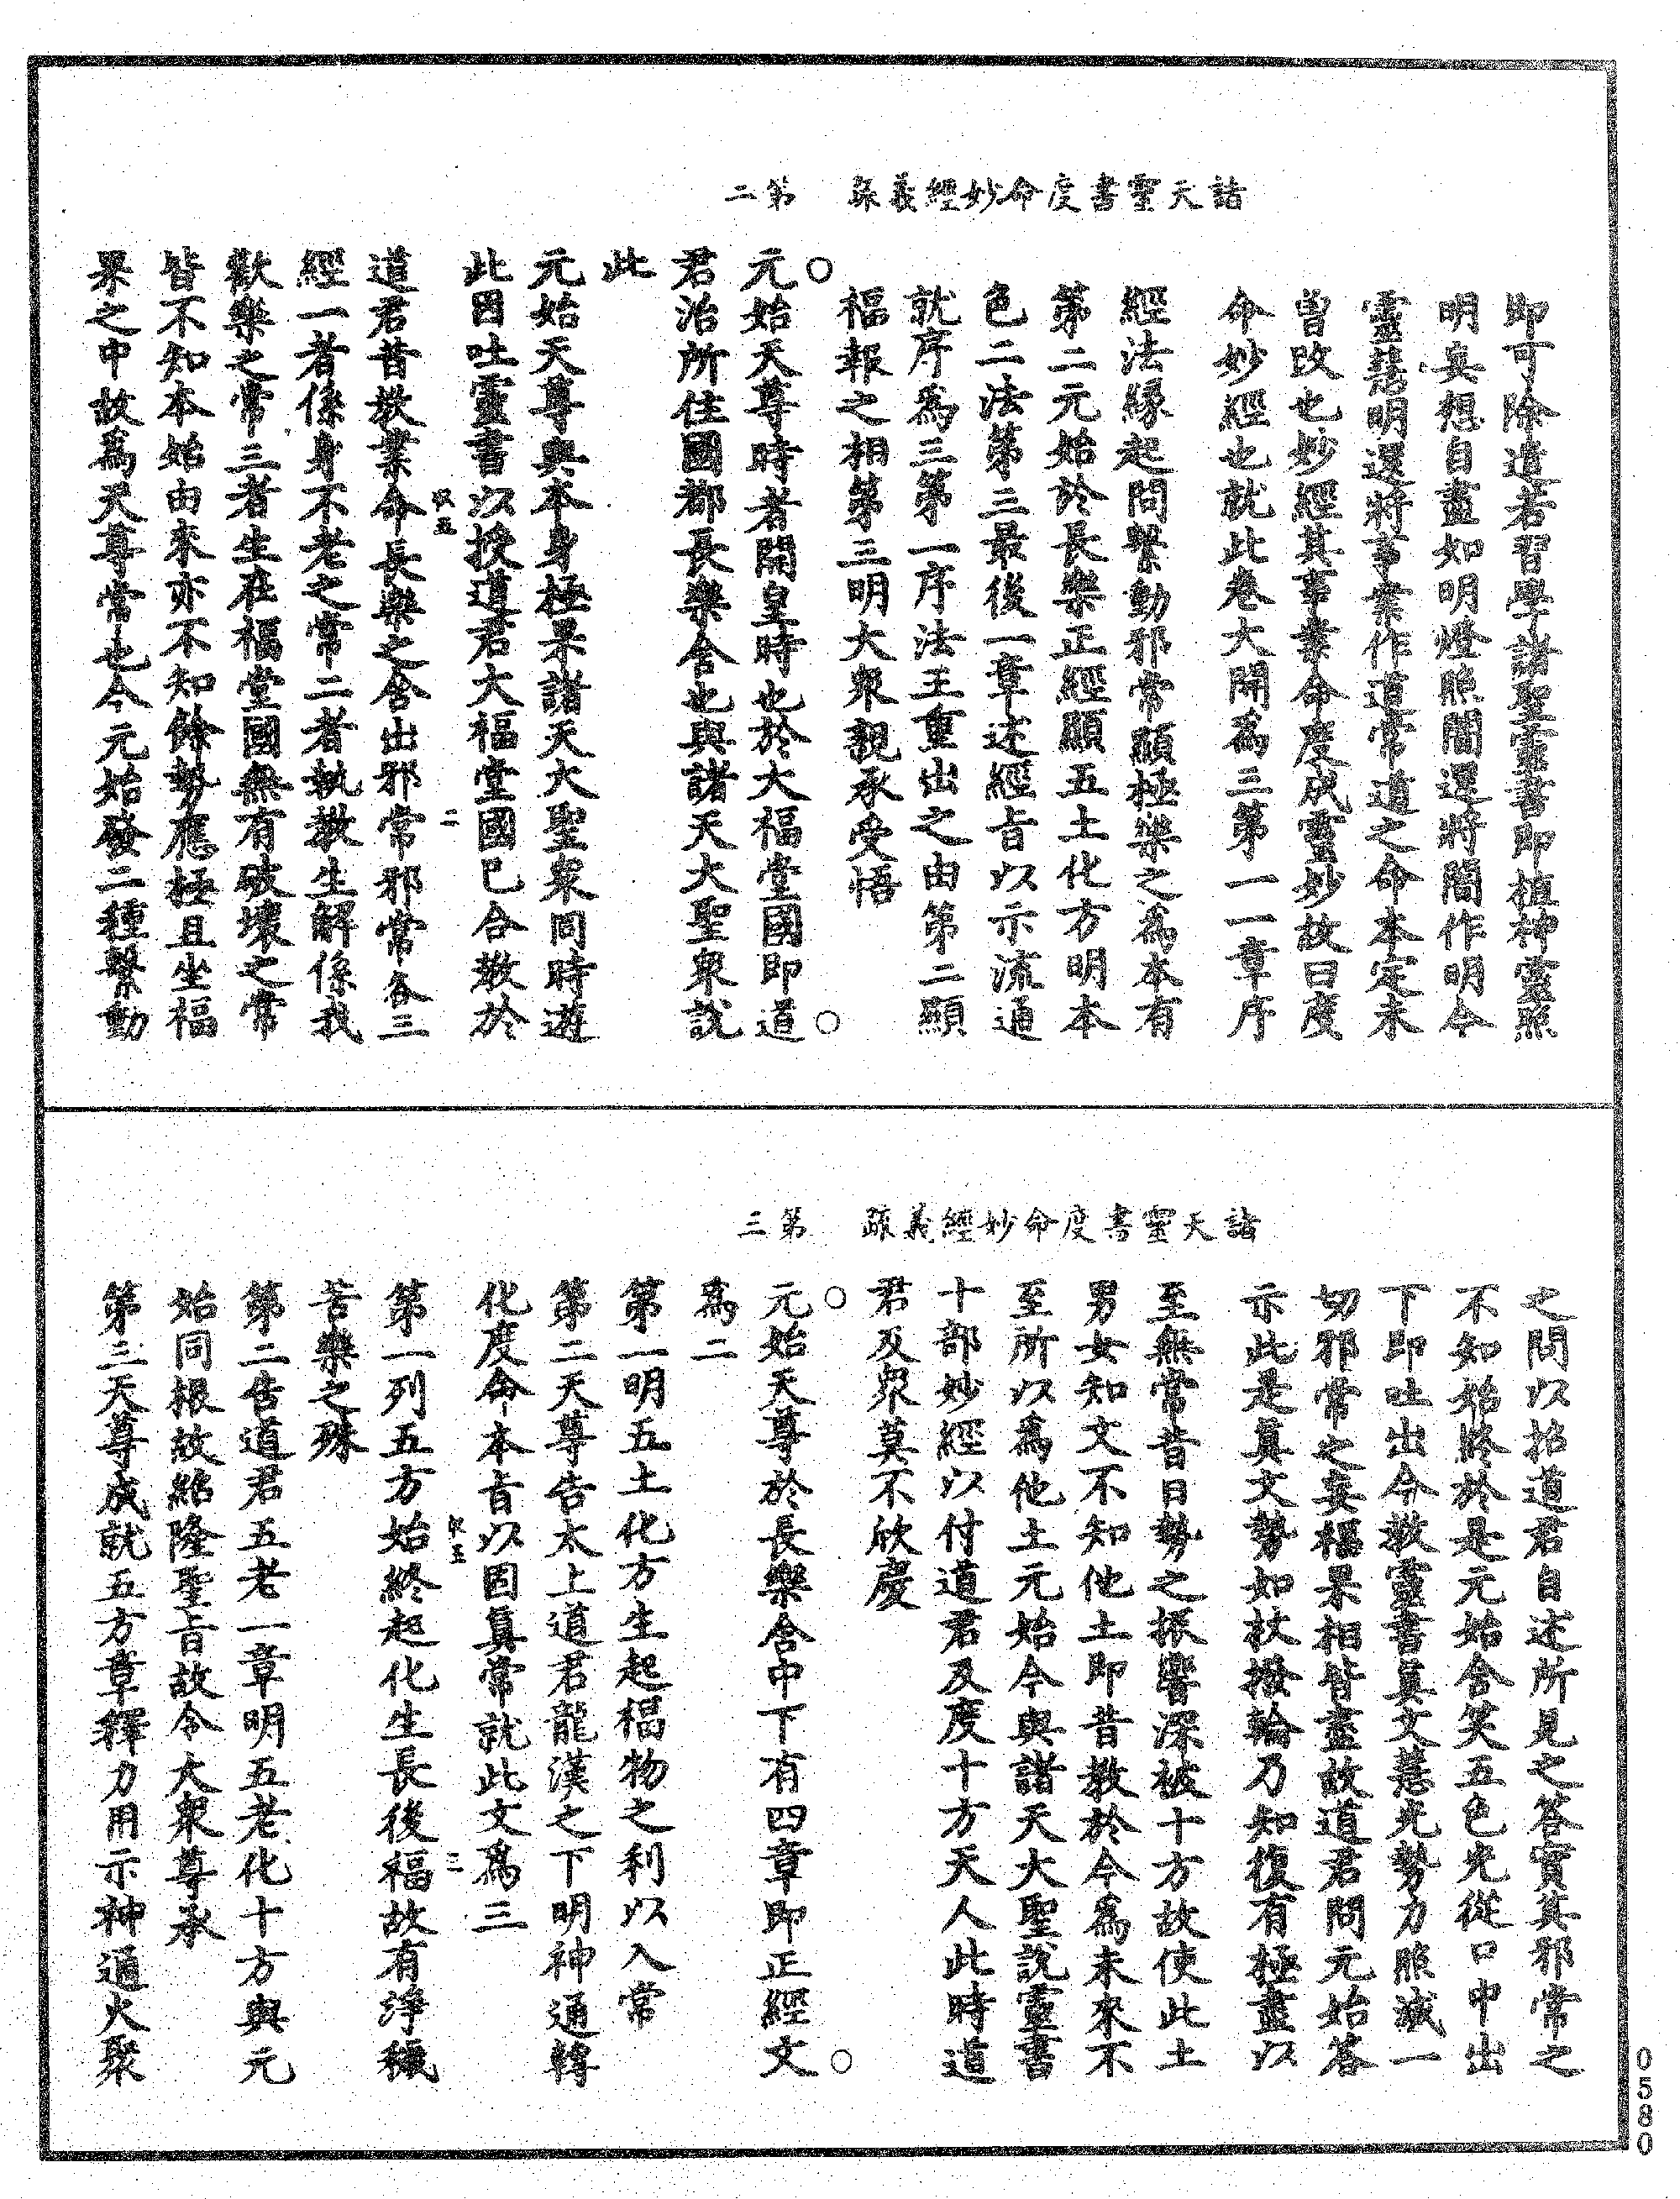 諸天靈書度命妙經義疏　第二
即可除遣若習學諸聖靈書即植神靈照
明真想自盡如明燈照闇還將闇作明今
靈慧明還將事業作道常道之命本定未
曾改也妙經其事業命度成靈妙故曰度
命妙經也就此卷大開為三第一一章序
經法緣起問繫動邪常顯極樂之為本有
第二元始於長樂正經顯五土化方明本
色二法第三最後一章述經旨以示流通
就序為三第一序法王重出之由第二顯
福報之相第三明大眾親承受悟
○
元始天尊時者開皇時也於大福堂國即道
○
君治所住國都長樂舍也與諸天大聖眾說
此
元始天尊與本身極果諸天大聖眾同時遊
此因吐靈書以授道君大福堂國已合教於
道君昔教業命長樂之舍出邪常邪常各三
二
經一者係身不老之常二者執教生解係我
歡樂之常三者生在福堂國無有破壞之常
皆不知本始由來亦不知餘勢應極且坐福
果之中故為天尊常也今元始發二種繫動
諸天靈書度命妙經義疏　第三
之問以招道君自述所見之答實其邪常之
不知始終於是元始含笑五色光從口中出
下即吐出今教靈書真文慧光勢力照滅一
切邪常之妄福果相皆盡故道君問元始答
示此是真文勢如杖撥輪乃知復有極盡以
至無常昔日勢之振響深被十方故使此土
男女知文不知他土即昔教於今為未來不
至所以為他土元始今與諸天大聖說靈書
十部妙經以付道君及度十方天人此時道
君及眾莫不欣慶
○
元始天尊於長樂舍中下有四章即正經文
○
為二
第一明五土化方生起福物之利以入常
第二天尊告太上道君龍漢之下明神通轉
化度命本旨以固真常就此文為三
第一列五方始終起化生長後福故有淨穢
三
苦樂之殊
第二告道君五老一章明五老化十方與元
始同根故紹隆聖旨故令大眾尊承
第三天尊成就五方章釋力用示神通火聚
0580